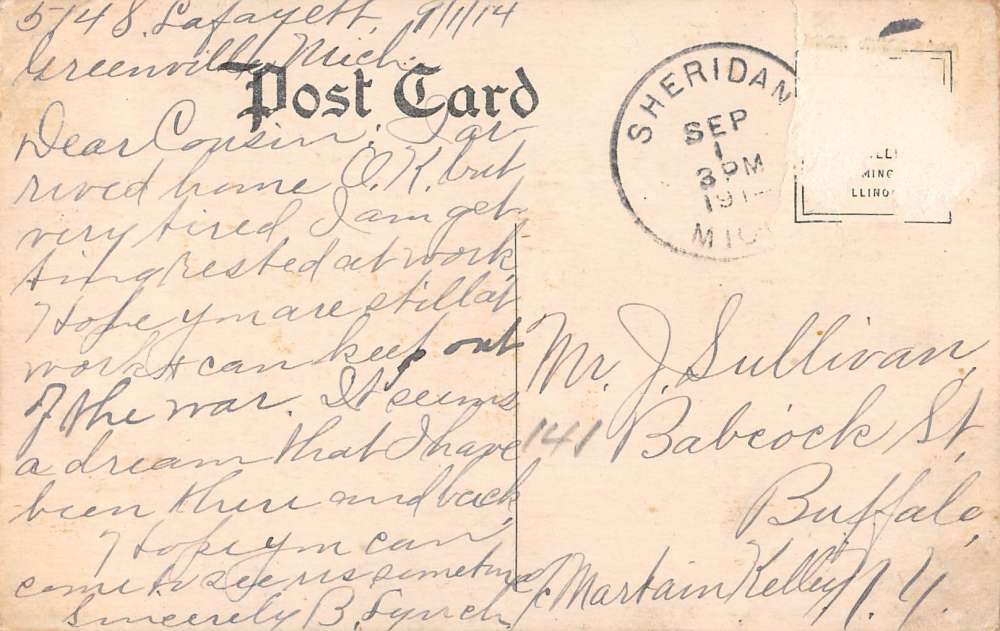 514 S. Lafayett, 9/1/14
Greenville Mich.
Post Card
Dear Cousin; I ar-
rived home O.K. but
very tired I am get-
ting rested at work,
Hope you are still at
work & can keep out
of the war. It seems
a dream that I have
been there and back,
Hope you can
come to see us sometime
Sincerely B. Lynch.
SHERIDAN
SEP
1
3 PM
191
MIC
LLINO
Mr. J. Sullivan,
141 Babcock St,
Buffalo,
c/o Martain Kelley N.Y.